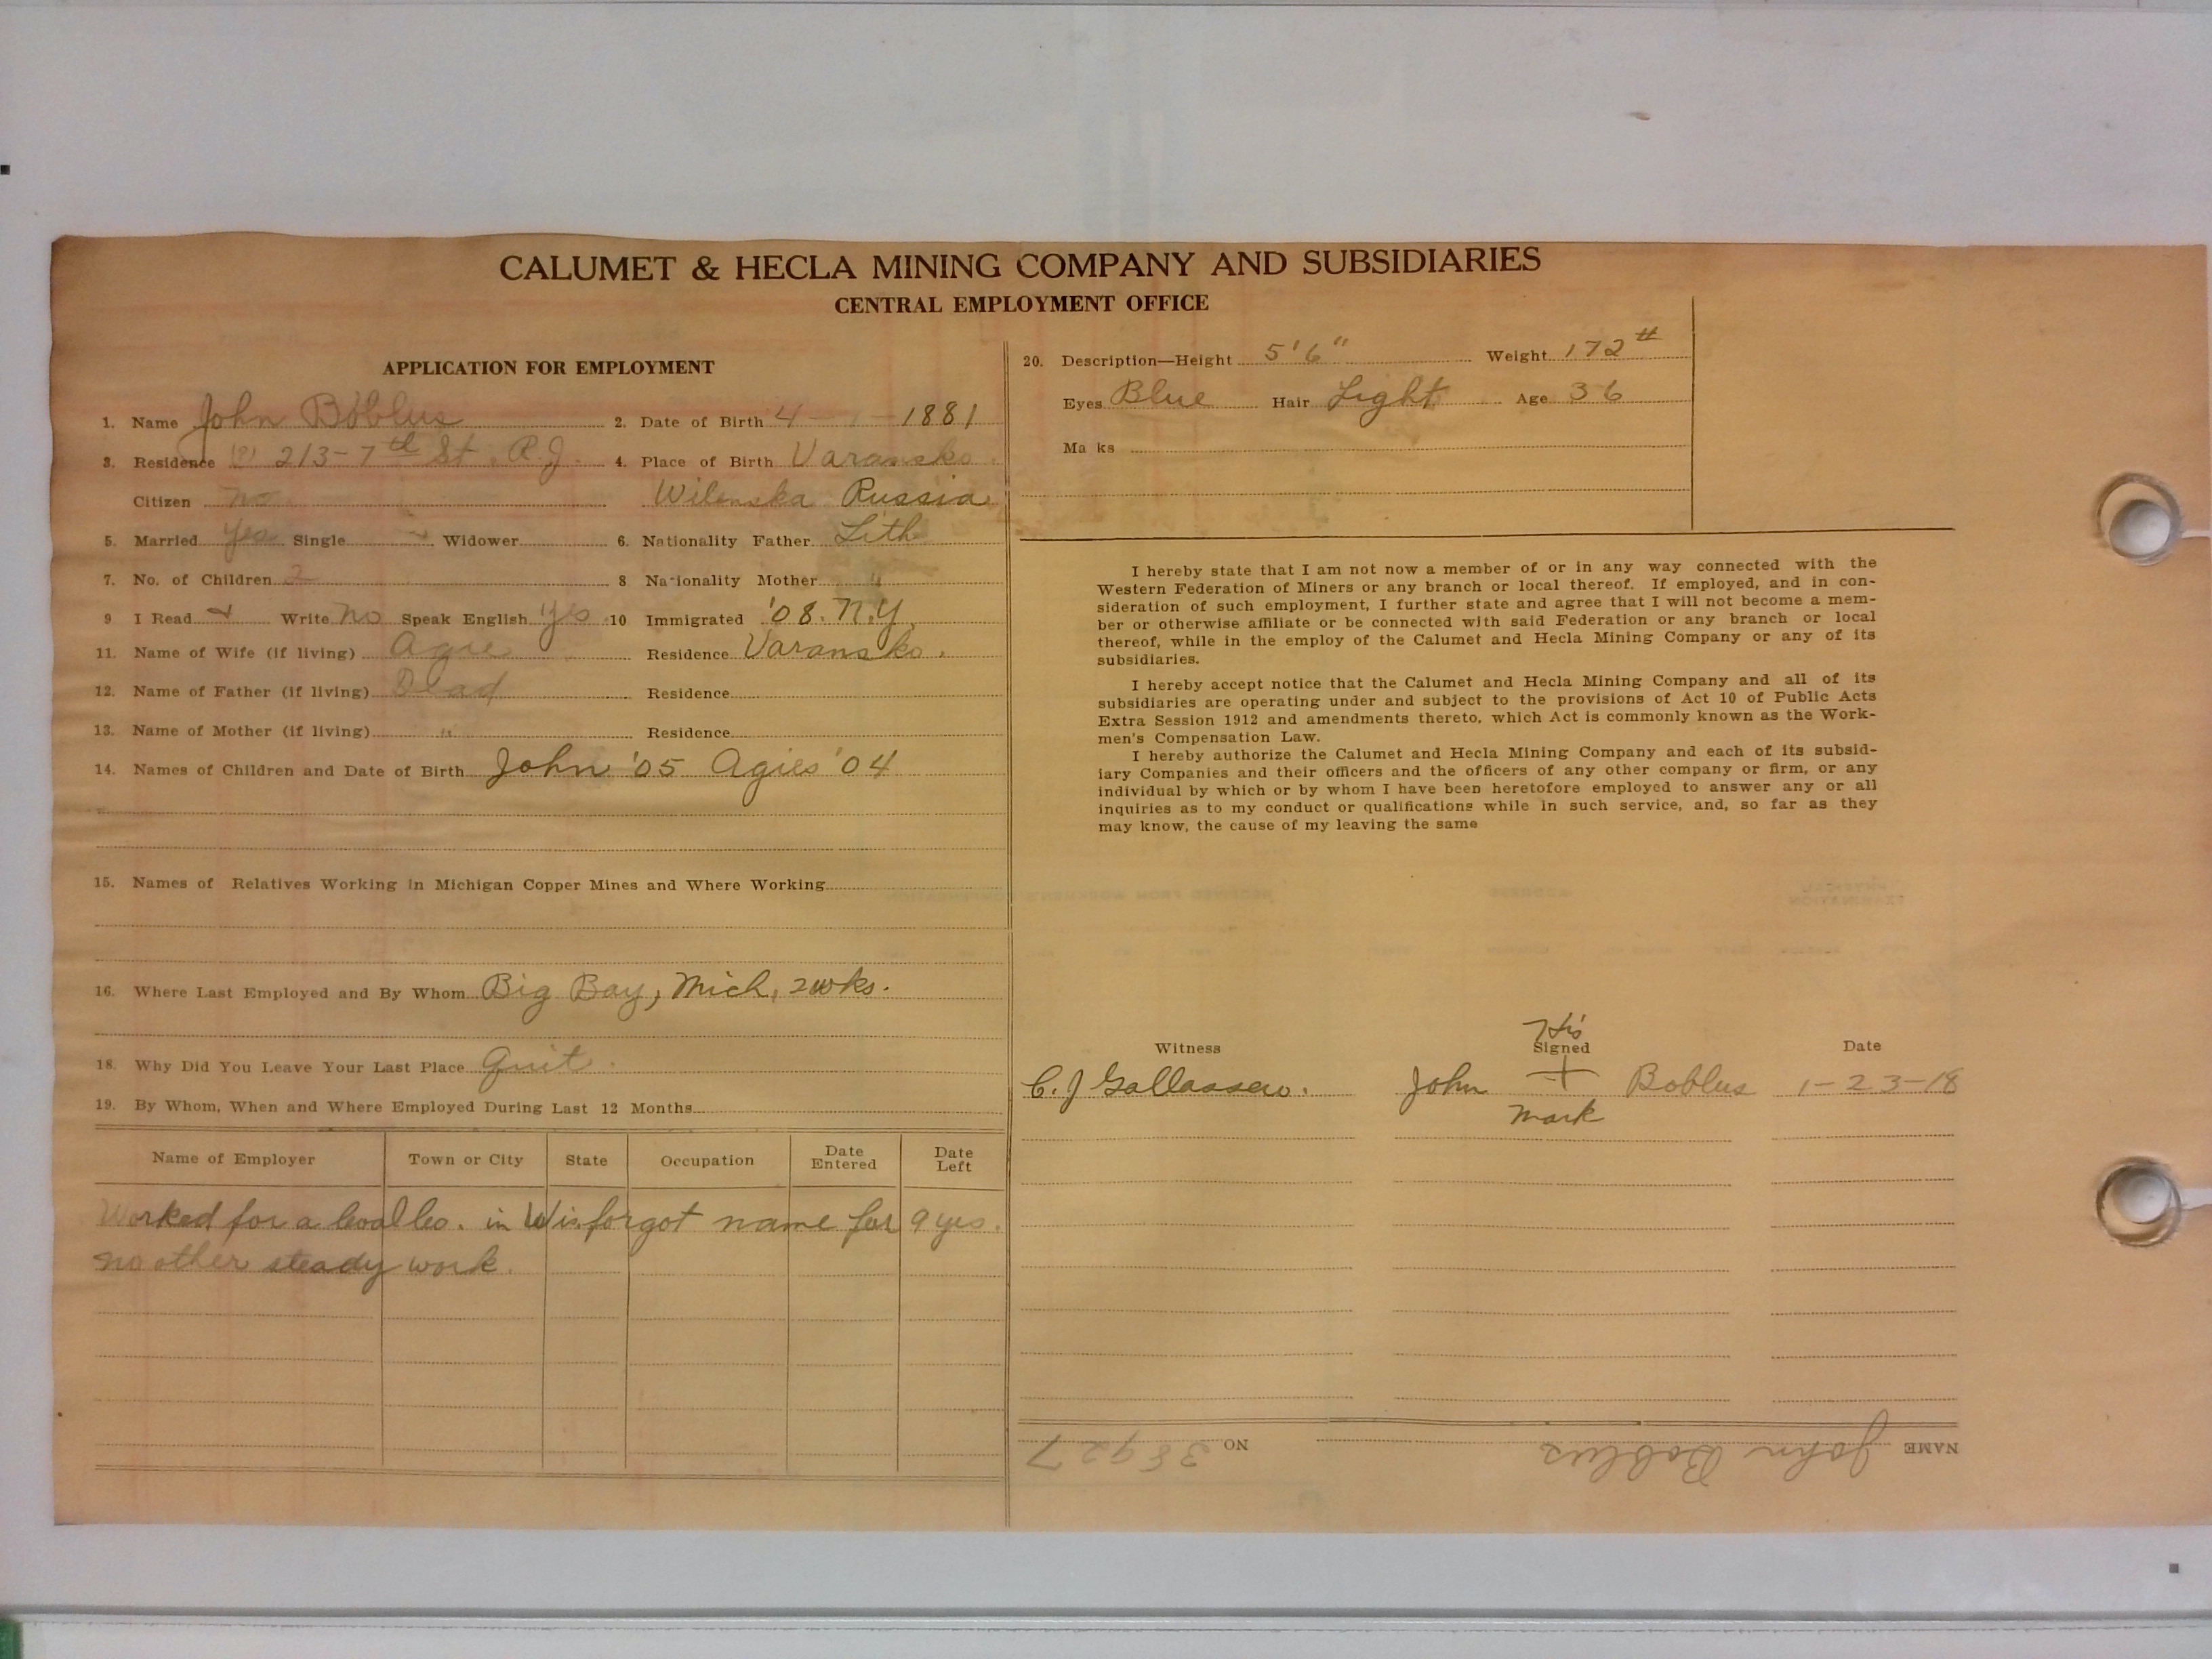 CALUMET & HECLA MINING COMPANY AND SUBSIDIARIES
CENTRAL EMPLOYMENT OFFICE
APPLICATION FOR EMPLOYMENT
1. Name John Boblus 2. Date of Birth 4 - 1 - 1881
3. Residence 213-7th St. R.J. 4. Place of Birth Varansko
Citizen no Wilenska Russia
5. Married Yes Single Widower 6. Nationality Father Lith
7. No. of Children 2 8 Nationality Mother "
9 I Read Write no Speak English Yes 10 Immigrated '08. N.Y.
11. Name of Wife (if living) Agie Residence Varansko.
12. Name of Father (if living) Dead Residence
13. Name of Mother (if living) " Residence
14. Names of Children and Date of Birth John '05 Agies '04
15. Names of Relatives Working in Michigan Copper Mines and Where Working
16. Where Last Employed and By Whom Big Bay, Mich, 2wks.
18. Why Did You Leave Your Last Place Quit.
19. By Whom, When and Where Employed During Last 12 Months
Name of Employer Town or City State Occupation Date Entered Date Left
Worked for a Coal Co. in Wis forgot name for 9 yrs.
no other steady work.
20. Description—Height 5'6" Weight 172#
Eyes Blue Hair Light Age 36
Ma ks
I hereby state that I am not now a member of or in any way connected with the
Western Federation of Miners or any branch or local thereof. If employed, and in con-
sideration of such employment, I further state and agree that I will not become a mem-
ber or otherwise affiliate or be connected with said Federation or any branch or local
thereof, while in the employ of the Calumet and Hecla Mining Company or any of its
subsidiaries.
I hereby accept notice that the Calumet and Hecla Mining Company and all of its
subsidiaries are operating under and subject to the provisions of Act 10 of Public Acts
Extra Session 1912 and amendments thereto, which Act is commonly known as the Work-
men's Compensation Law.
I hereby authorize the Calumet and Hecla Mining Company and each of its subsid-
iary Companies and their officers and the officers of any other company or firm, or any
individual by which or by whom I have been heretofore employed to answer any or all
inquiries as to my conduct or qualifications while in such service, and, so far as they
may know, the cause of my leaving the same
His
Witness Signed Date
C. J. John + Boblus 1-23-18
mark
NAME John Boblus NO 38927